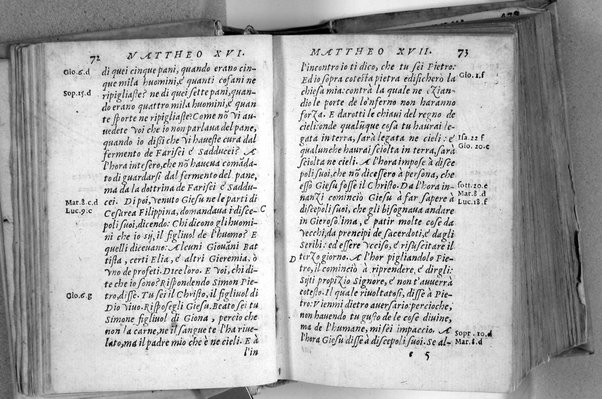 72 MATTHEO XVI.
Gio.6.d
di quei cinque pani, quando erano cin-
que mila huomini, e quanti cofani ne
Sop.15.d
ripigliaste? ne di quei sette pani, quan-
do erano quattro mila huomini, e quan
te sporte ne ripigliaste? Come nõ vi au
uedete voi che io non parlaua del pane,
quando io dissi che vi haueste cura dal
fermento de Farisei e Sadducei? A
l'hora intesero, che nõ haueua comãda-
to di guardarsi dal fermento del pane,
ma da la dottrina de Farisei e Saddu-
Mar.8.c.d
cei. Di poi, venuto Giesu ne le parti di
Luc.9.c
Cesarea Filippina, domandaua i disce-
C
poli suoi, dicendo: Chi dicono gli huomi-
ni che io sij, il figliuol de l'huomo? E
quelli diceuano: Alcuni Giouãni Bat
tista, certi Elia, e altri Gieremia, ò
vno de profeti. Dice loro. E voi, chi di-
te che io sono? Rispondendo Simon Pie-
Gio.6.g
tro, disse: Tu sei il Christo, il figliuol di
Dio viuo. Rispose gli Giesu, Beato sei tu
Simone figliuol di Giona, percio che
non la carne, ne il sangue te l'ha riue-
lato, ma il padre mio che è ne cieli. E à
l'in
MATTHEO XVII. 73
l'incontro io ti dico, che tu sei Pietro:
Ed io sopra cotesta pietra edificherò la
Gio.1.f
chiesa mia: contra la quale ne eziãn-
dio le porte de lo'nferno non haranno
forza. E darotti le chiaui del regno de
cieli: onde qualũque cosa tu haurai le-
gata in terra, sarà legata ne cieli: e
Isa.22.f
qualunche haurai sciolta in terra, sarà
Gio.20.e
sciolta ne cieli. A l'hora impose à disce
poli suoi, che nõ dicessero à persona, che
esso Giesu fosse il Christo. Da l'hora in-
sott.20.e
nanzi comincio Giesu à far sapere à
Mar.8.d
discepoli suoi, che gli bisognaua andare
Luc.18.f
in Gierosolima, e patir molte cose da
vecchi, da prencipi de sacerdoti, e dagli
Scribi: ed essere vcciso, e risuscitare il
D
terzo giorno. A l'hor pigliandolo Pie-
tro, il comincio à riprendere, e dirgli:
Sijti propizio Signore, e non t'auuerrà
cotesto: Il quale riuoltatosi, disse à Pie-
tro: Vienmi dietro auuersario: percioche,
non hauendo tu gusto de le cose diuine,
ma de l'humane, mi sei impaccio. A
Sopr.10.d
l'hora Giesu disse à discepoli suoi. Se al-
Mar.8.d
e 5